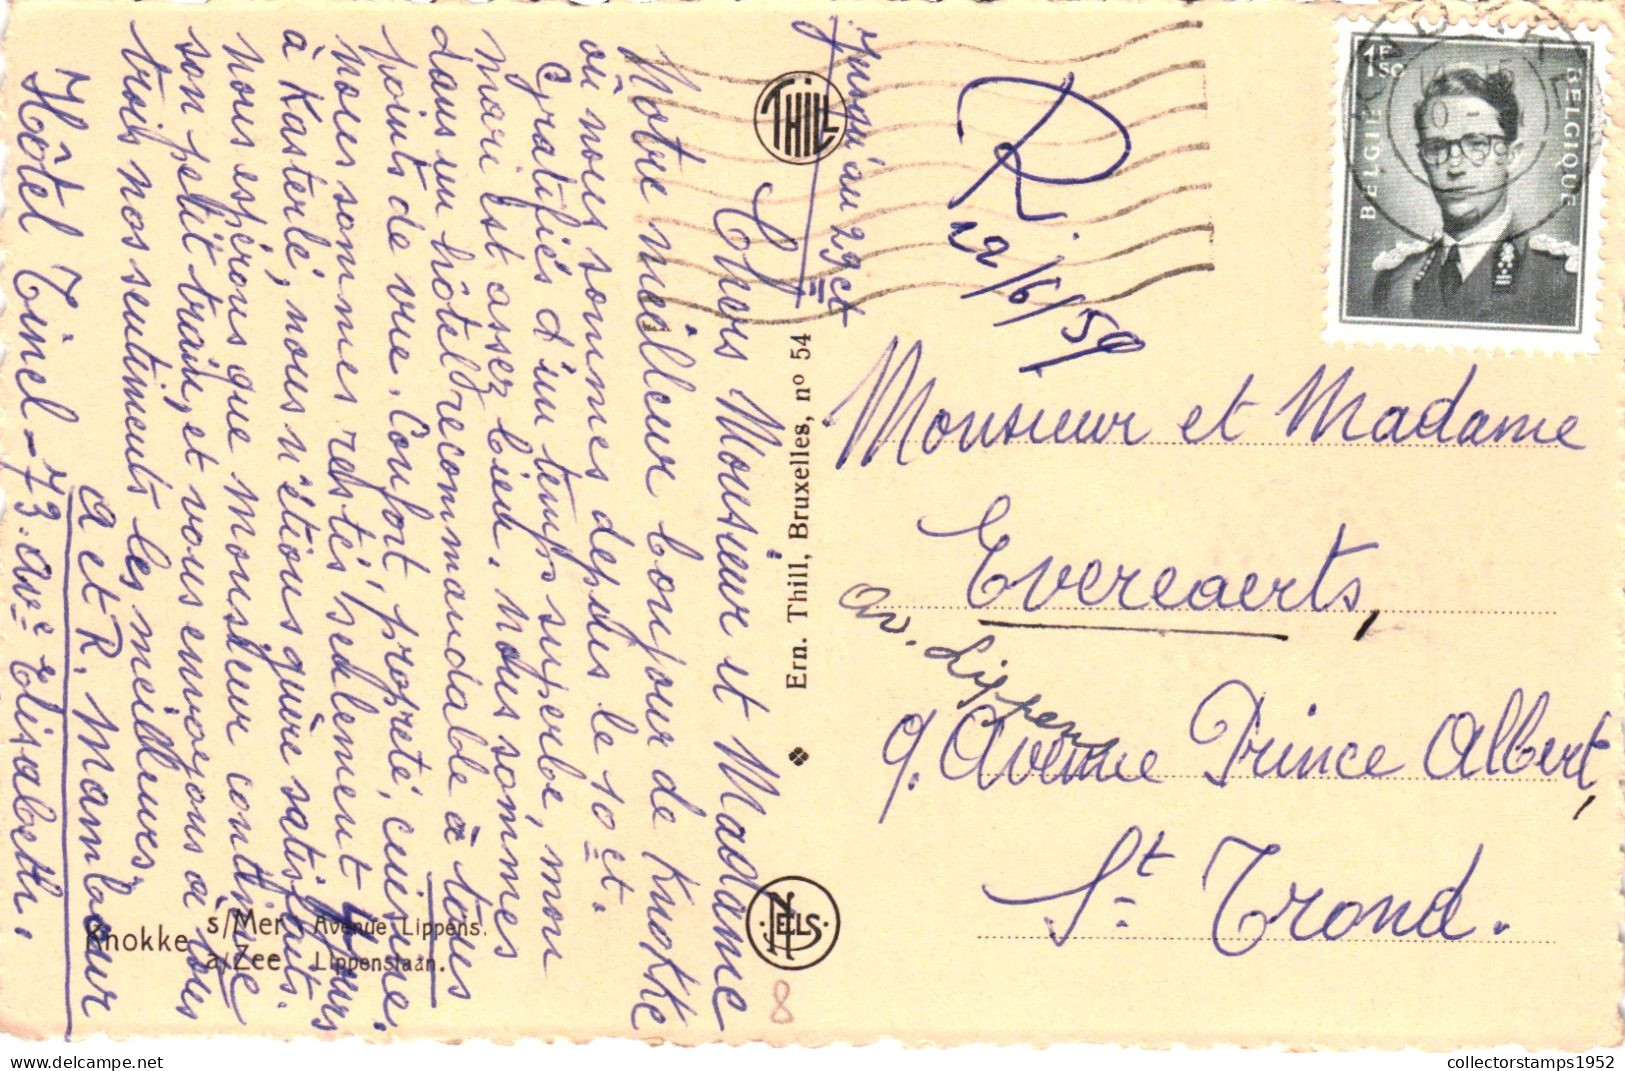 Chers Monsieur et Madame
Notre meilleur bonjour de Knokke
où nous sommes depuis le 10 ct.
Gratifiés d'un temps superbe, mon
mari est assez bien. Nous sommes
dans un hôtel recommandable à tous
points de vue. Confort, propreté, cuisine.
Nous sommes restés seulement 4 jours
à Kasterlé, nous n'étions guère satisfaits.
Nous espérons que Monsieur continue
son petit train, et vous envoyons à tous
trois nos sentiments les meilleurs.
A et R. Mambour
Hôtel Tinel - 73. Avᵉ Elisabeth.
Jusqu'au 29 ct
THILL
Ern. Thill, Bruxelles, nº 54
NELS
8
Knokke s/Mer Avenue Lippens.
a/Zee Lippenslaan.
R
19/6/59
BELGIE BELGIQUE
1F50
1959
Monsieur et Madame
Evereaerts,
av. Lippens
9. Avenue Prince Albert,
St. Trond.
collectorstamps1952